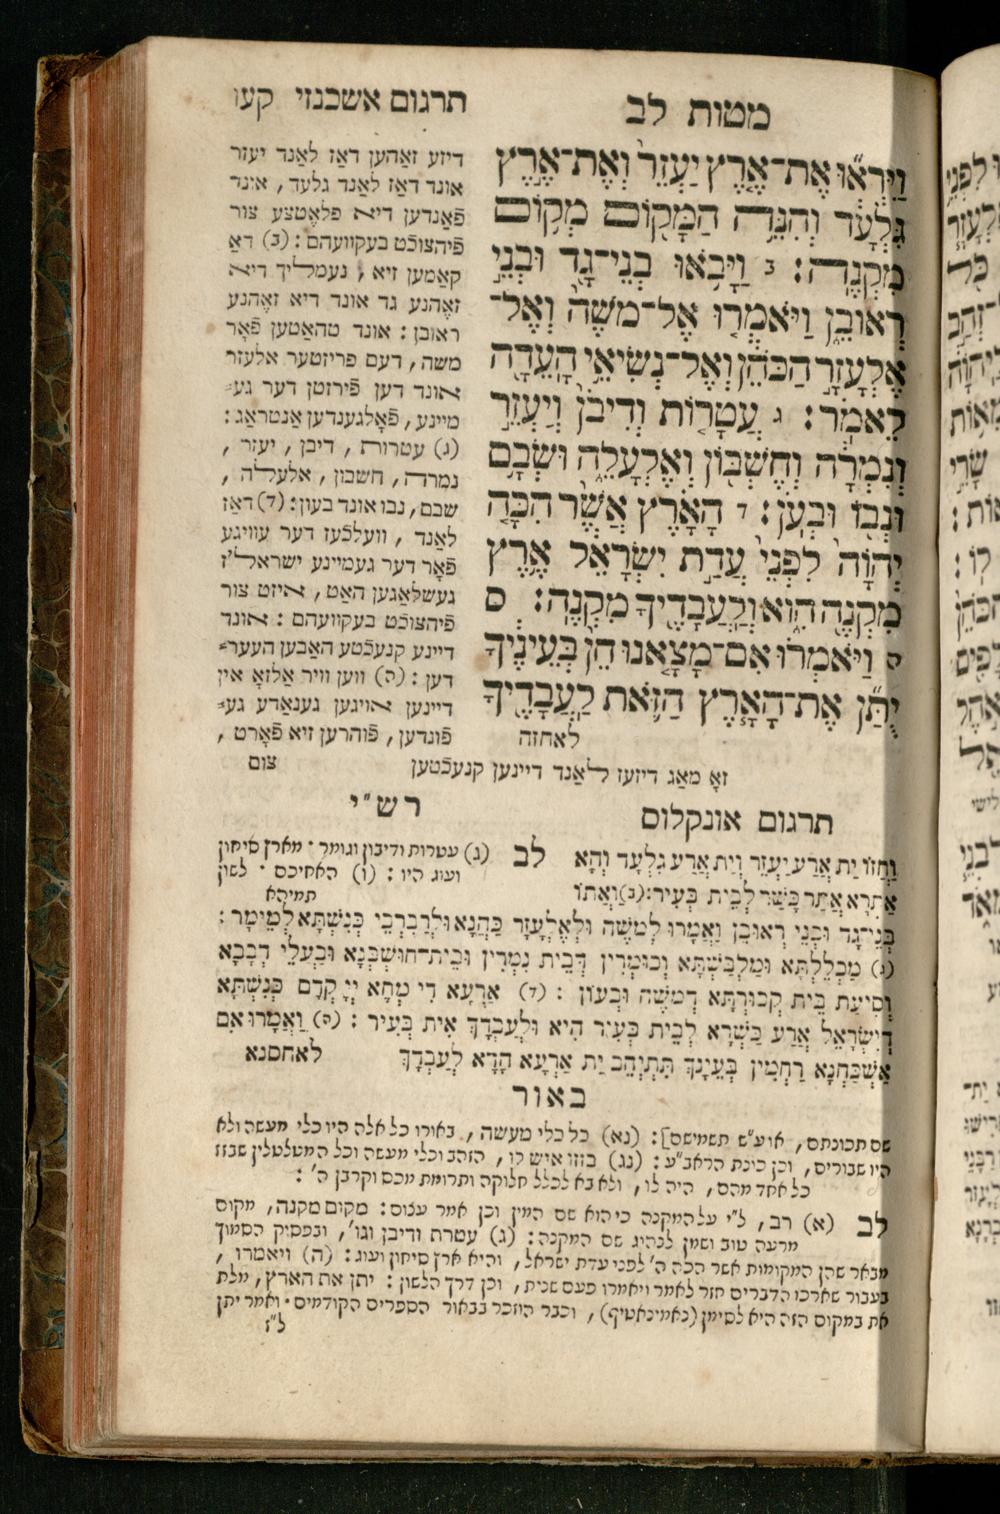 מטות לב
וַיִּרְא֞וּ אֶת־אֶ֤רֶץ יַעְזֵר֙ וְאֶת־אֶ֣רֶץ
גִּלְעָ֔ד וְהִנֵּ֥ה הַמָּק֖וֹם מְק֥וֹם
מִקְנֶֽה׃ ב וַיָּבֹ֥אוּ בְנֵֽי־גָ֖ד וּבְנֵ֣י
רְאוּבֵ֑ן וַיֹּאמְר֤וּ אֶל־מֹשֶׁה֙ וְאֶל־
אֶלְעָזָ֣ר הַכֹּהֵ֔ן וְאֶל־נְשִׂיאֵ֥י הָעֵדָ֖ה
לֵאמֹֽר׃ ג עֲטָר֤וֹת וְדִיבֹן֙ וְיַעְזֵ֣ר
וְנִמְרָ֔ה וְחֶשְׁבּ֖וֹן וְאֶלְעָלֵ֑ה וּשְׂבָ֥ם
וּנְב֖וֹ וּבְעֹֽן׃ ד הָאָ֗רֶץ אֲשֶׁ֨ר הִכָּ֤ה
יְהוָֹה֙ לִפְנֵי֙ עֲדַ֣ת יִשְׂרָאֵ֔ל אֶ֥רֶץ
מִקְנֶ֖ה הִ֑וא וְלַעֲבָדֶ֖יךָ מִקְנֶֽה׃ ס
ה וַיֹּאמְר֗וּ אִם־מָצָ֤אנוּ חֵן֙ בְּעֵינֶ֔יךָ
יֻתַּ֞ן אֶת־הָאָ֧רֶץ הַזֹּ֛את לַעֲבָדֶ֖יךָ
לאחזה
תרגום אשכנזי קעו
דיזע זאַהען דאַז לאַנד יעזר
אונד דאַז לאַנד גלעד, אונד
פֿאַנדען דיא פלאֶטצע צור
פֿיהצוכֿט בעקוועהם: (ב) דאַ
קאַמען זיא, נעמליך דיא
זאֶהנע גד אונד דיא זאֶהנע
ראובן: אונד טהאַטען פֿאָר
משה, דעם פריזטער אלעזר
אונד דען פֿירזטן דער גע=
מיינע, פֿאָלגענדען אַנטראַג:
(ג) עטרות, דיבן, יעזר,
נמרה, חשבון, אלעלה,
שבם, נבו אונד בעון: (ד) דאַז
לאַנד, וועלכֿעז דער עוויגע
פֿאָר דער געמיינע ישראל'ז
געשלאַגען האַט, איזט צור
פֿיהצוכֿט בעקוועהם: אונד
דיינע קנעכֿטע האַבען העער=
דען: (ה) ווען וויר אַלזאָ אין
דיינען אויגען גענאַדע גע=
פֿונדען, פֿוהרען זיא פֿאָרט,
זאָ מאַג דיזעז לאַנד דיינען קנעכֿטען צום
תרגום אונקלוס
וַחֲזוֹ יַת אֲרַע יַעְזֵר וְיַת אֲרַע גִלְעָד וְהָא
אַתְרָא אֲתַר כָּשַׁר לְבֵית בְּעִיר: (ב) וַאֲתוֹ
בְּנֵי־גָד וּבְנֵי רְאוּבֵן וַאֲמָרוּ לְמֹשֶׁה וּלְאֶלְעָזָר כַּהֲנָא וּלְרַבְרְבֵי כְּנִשְׁתָּא לְמֵימָר:
(ג) מַכְלֶלְתָּא וּמַלְבֶּשְׁתָּא וְכוּמְרִין דְּבֵית נִמְרִין וּבֵית־חוּשְׁבְּנָא וּבַעֲלֵי דְבָבָא
וְסִיעַת בֵּית קְבוּרְתָּא דְמֹשֶׁה וּבְעוֹן: (ד) אַרְעָא דִי מְחָא יְיָ קֳדָם כְּנִשְׁתָּא
דְיִשְׂרָאֵל אֲרַע כַּשְׁרָא לְבֵית בְּעִיר הִיא וּלְעַבְדָךְ אִית בְּעִיר: (ה) וַאֲמָרוּ אִם
אַשְׁכַּחְנָא רַחֲמִין בְּעֵינָךְ תִּתְיְהֵב יַת אַרְעָא הָדָא לְעַבְדָךְ לאחסנא
רש"י
לב (ג) עטרות ודיבון וגומר · מארץ סיחון
ועוג היו: (ו) האחיכם · לשון
תמיהא
באור
שם תכונתם, או ע"ש תשמישם]: (נא) כל כלי מעשה, באורו כל אלה היו כלי מעשה ולא
היו שבורים, וכן כונת הראב"ע: (נג) בזזו איש לו, הזהב וכלי מעשה וכל המטלטלין שבזז
כל אחד מהם, היה לו, ולא בא לכלל חלוקה ותרומת מכס וקרבן ה':
לב (א) רב, ל"י על המקנה כי הוא שם המין וכן אמר עצום: מקום מקנה, מקום
מרעה טוב ושמן לנהיג שם המקנה: (ג) עטרת ודיבן וגו', ובפסיק הסמוך
מבאר שהן המקומות אשר הכה ה' לפני עדת ישראל, והיא ארץ סיחון ועוג: (ה) ויאמרו,
בעבור שארכו הדברים חזר לאמר ויאמרו פעם שנית, וכן דרך הלשון: יתן את הארץ, מלת
את במקום הזה היא לסימן (נאמינאטיף), וכבר הוזכר בבאור הספרים הקודמים · ואמר יתן
ל"ז